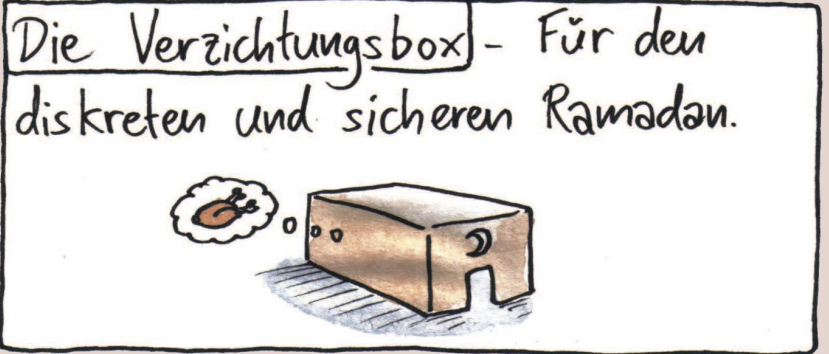 Die Verzichtungsbox - Für den
diskreten und sicheren Ramadan.